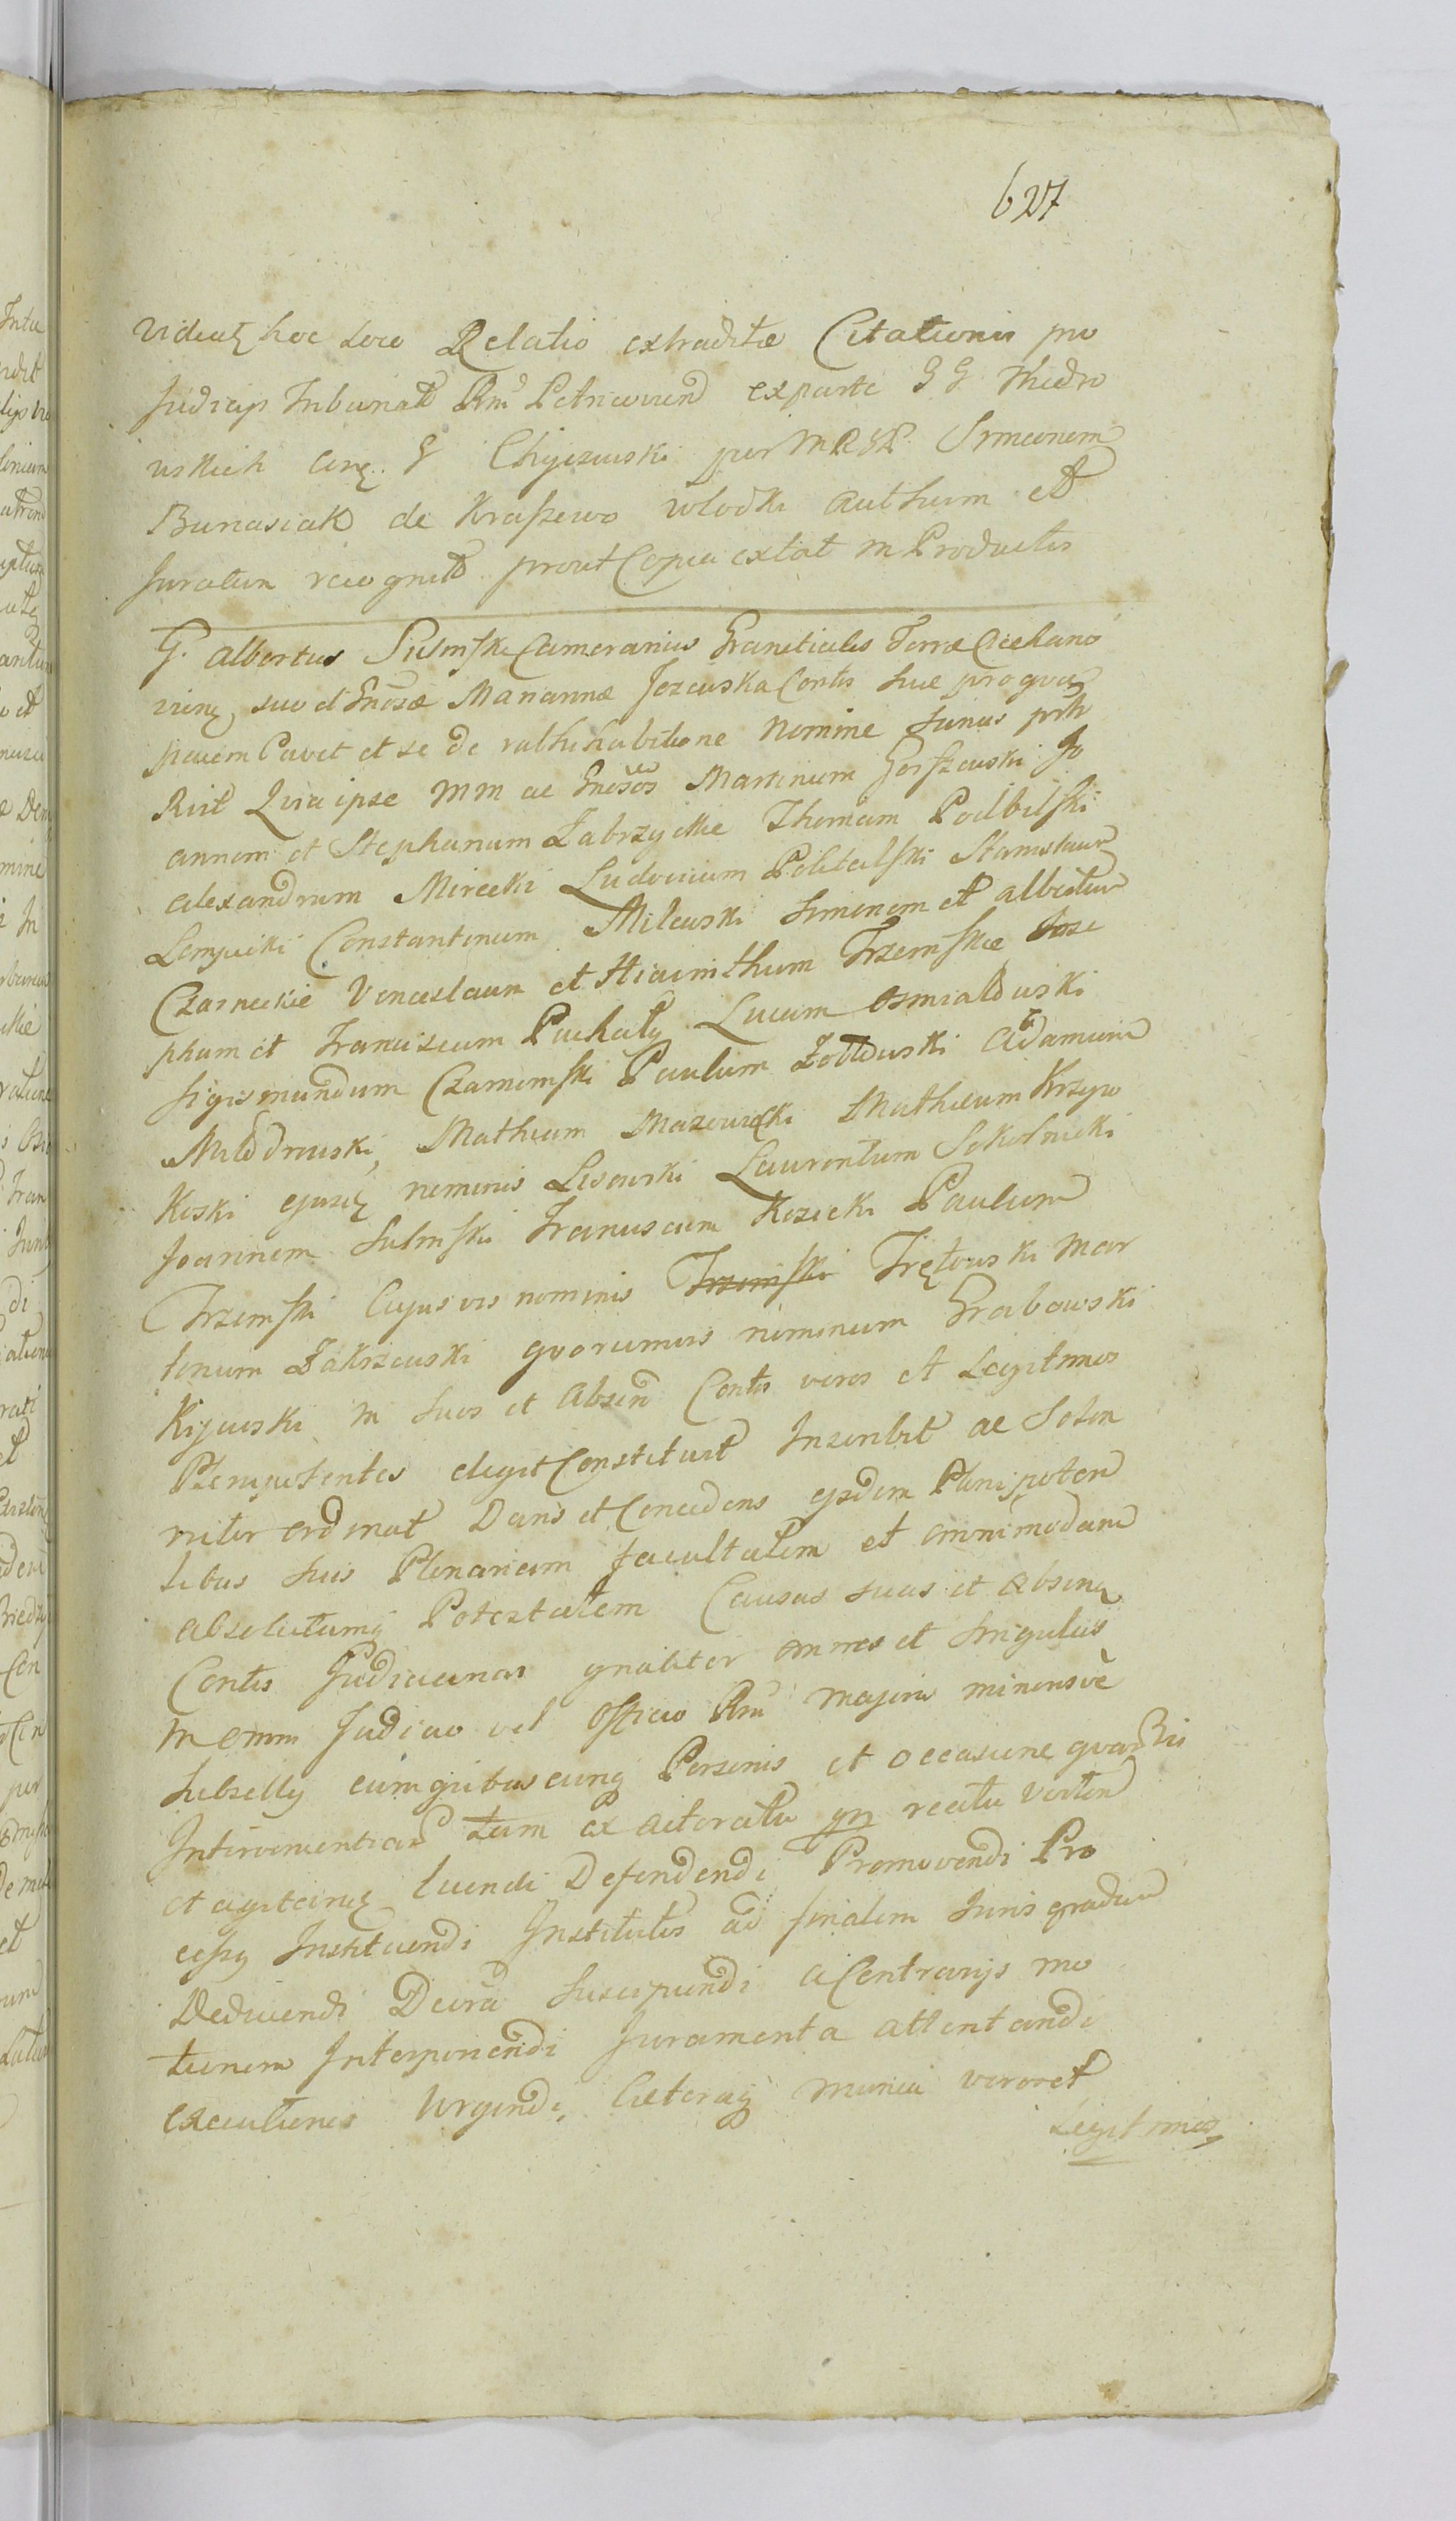 627
Videatʒ hoc Loco Relatio extraditæ Citationis pro
Judicijs Tribunalt Rni Petricovien exparte GG Modro
Burasiak de Kraszewo Włodki authum et
Juratum recognit prout Copia extat in Productis
G. Albertus Sulmski Camerarius Graniticalis Terræ Ciechano
vienʒ suo et Gnosæ Mariannæ Jezewska Contis suæ pro qua
pariem Cavet et se de rathihabitione nomine suius
Rit Quia ipse MM ac Gnosos Martinum Gorszewski Jo
annem et Stephanum Zabrzyckie Thomam Podbilski
alexandrum Mirecki Ludovicum Politalski Stanislaum
Lempicki Constantinum Milewski Simonem et albertum
Czarneckie Venceslaum et Hiacinthum Trzemskie Jose
phum et Franciscum Puchały Lucam Osmialowski
Sigismundum Czaremski Paulum Żołtowski Adamum
Młodrowski, Mathæum Mazowiecki Mathæum Krzyw
koski ejusdʒ nominis Lisowski Laurentium Sokolnicki
Joannem Sulmski Franciscum Kozicki Paulum
Trzemski Cujusvis nominis Trzemski Trętowski Mar
tinum Zakrzewski quorumvis nominum Grabowski
Kijewski in suos et Absen Contis veros et Legitimos
Plenipotentes elegit Constituit Inscribit ac Solen
niter ordinat Dans et Concedens ejsdem Plenipoten
tibus suis Plenariam facultatem et omnimodam
absolutamq Potestatem Causas suas et absenʒ
Contis Judiciarias gnaliter omnes et singulas
in omni Judicio vel Officio Rni majoris minorisvè
Subsellij cum quibuscunq Personis et occasione quavis
Intervenientia tam ex actoratu qm reatu verten
et agitanʒ luendi Defendendi Promovendi Pro
cessq Instituendi Institutos ad finalem Juris gradum
Deducendi Decra Suscipiendi a Contrarijs mo
tionem Interponendi Juramenta attentandi
Executiones Urgendi, Cæteraq munia veroret
Legitimoʒ